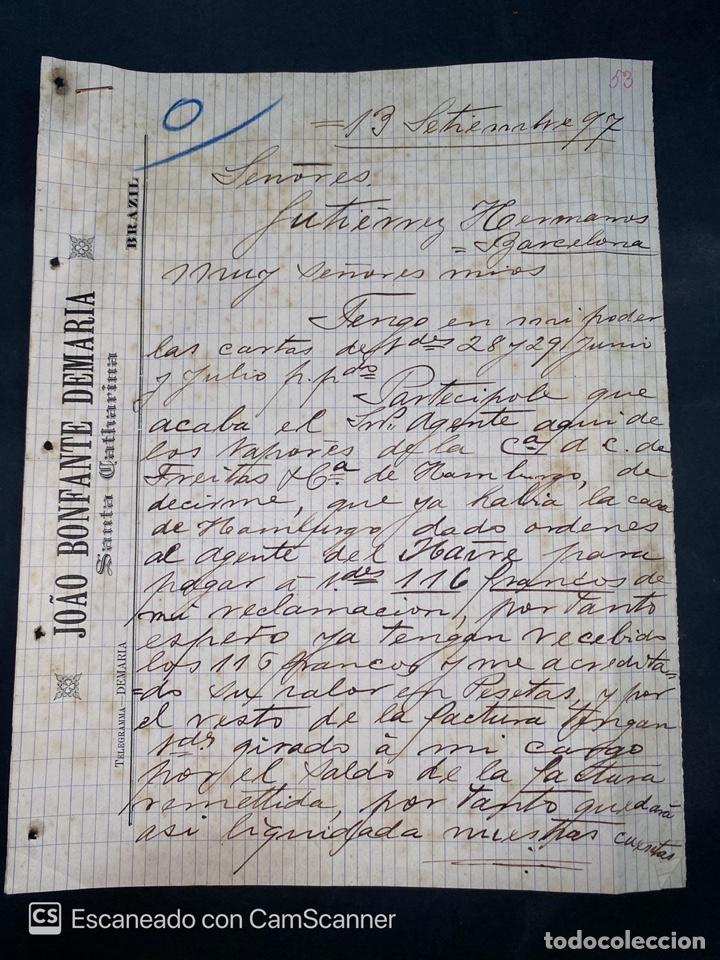 53
= 13 Setiembre 97
Señores.
Gutiérrez Hermanos
= Barcelona
Muy señores mios
Tengo en mi poder
las cartas de Vdes 28 y 29 Junio
y Julio p. pdo
Partecipole que
acaba el Snr. Agente aqui de
los vapores de la Ca A. C. de
Freitas & Ca. de Hamburgo, de
decirme, que ya habia la casa
de Hamburgo dado ordenes
al agente del Havre para
pagar á Vdes 116 francos de
mi reclamacion, por tanto
espero ya tengan recebido
los 116 francos y me acredita
=do su valor en Pesetas, y por
el resto de la factura tengan
Vdes girado á mi cargo
por el saldo de la factura
remettida, por tanto quedará
asi liquidada nuestras cuentas
JOÃO BONFANTE DEMARIA
Santa Catharina
BRAZIL
TELEGRAMMA—DEMARIA
CS Escaneado con CamScanner
todocoleccion